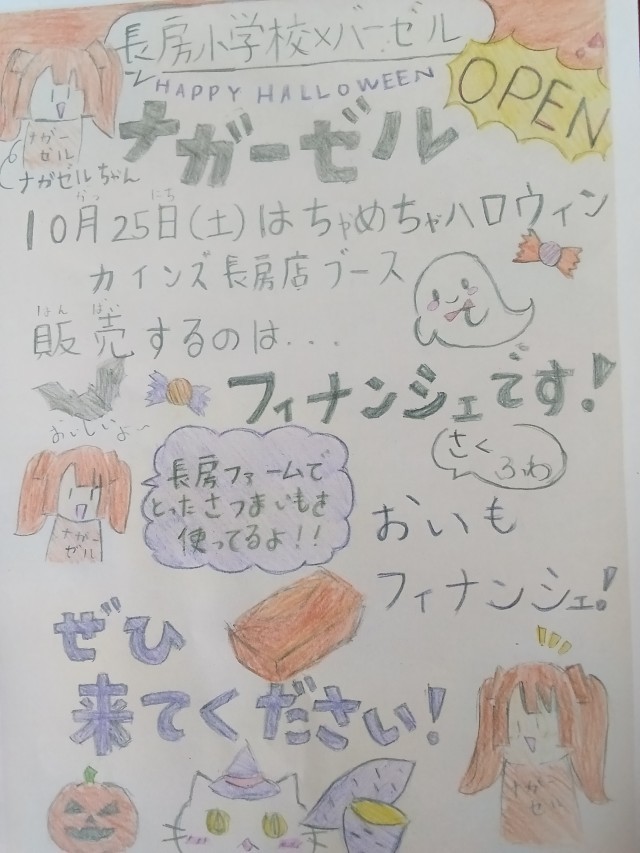 長房小学校×バーゼル
HAPPY HALLOWEEN
OPEN
ナガーゼル
ナガー
ゼル
ナガゼルちゃん
10月25日(土)はちゃめちゃハロウィン
がつ にち
カインズ長房店ブース
はん ばい
販売するのは...
フィナンシェです!
おいしいよ〜
さく
ふわ
長房ファームで
とったさつまいもを
使ってるよ!!
ナガー
ゼル
おいも
フィナンシェ!
ぜひ
来てください!
ナガ
ゼル